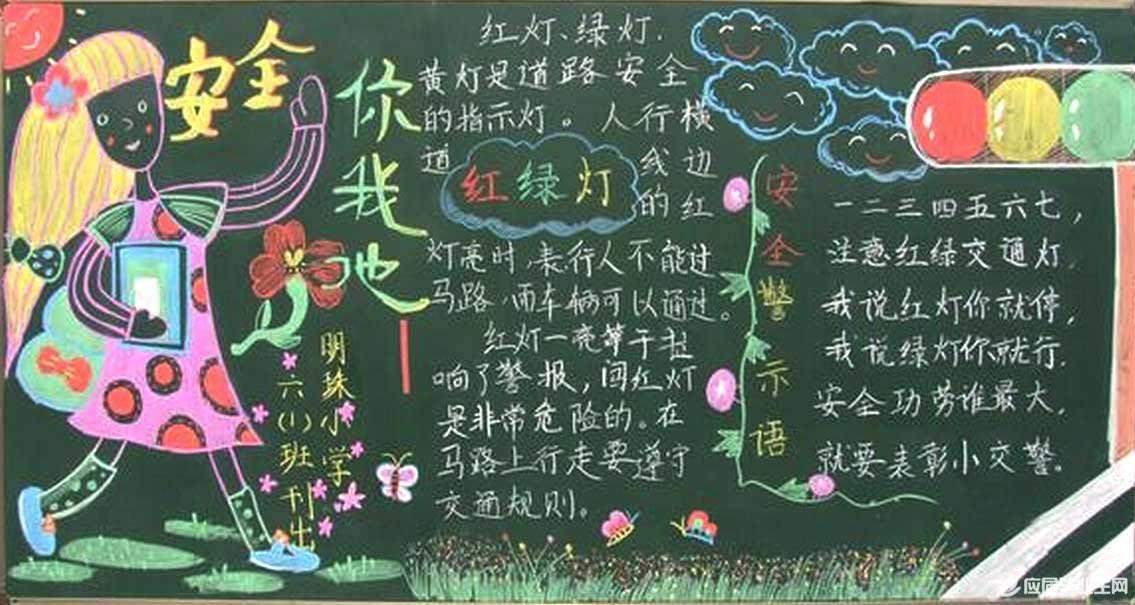 安全
你我他
明珠小学
六(1)班刊出
红灯、绿灯.
黄灯是道路安全
的指示灯。人行横
道
线边
红绿灯
的红
灯亮时,表行人不能过
马路,而车辆可以通过。
红灯一亮等于拉
响了警报,闯红灯
是非常危险的。在
马路上行走要遵守
交通规则。
安全警示语
一二三四五六七,
注意红绿交通灯,
我说红灯你就停,
我说绿灯你就行.
安全功劳谁最大,
就要表彰小交警。